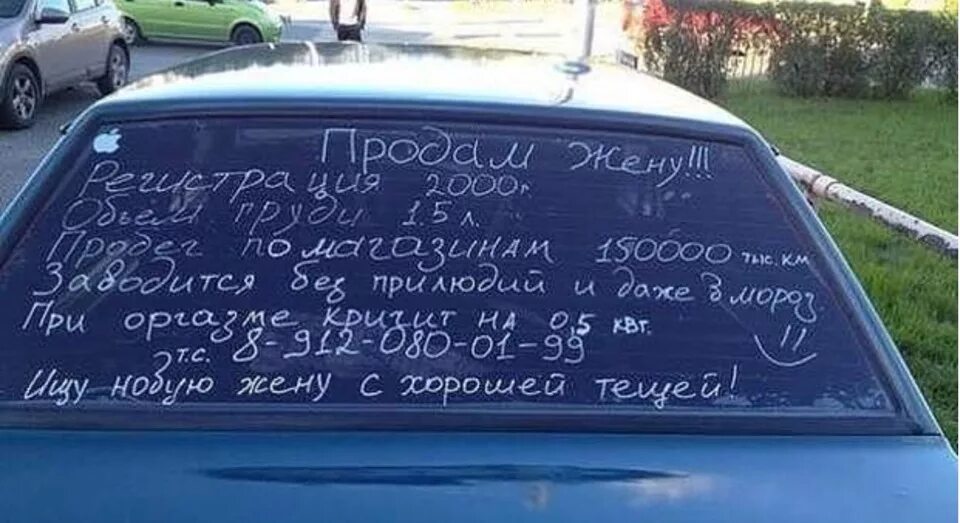 Продам Жену!!!
Регистрация 2000г.
Обьем груди 1.5 л.
Пробег по магазинам 150000 тыс. км
Заводится без прилюдий и даже в мороз
При оргазме кричит на 0,5 квт. !!
3 т.с. 8-912-080-01-99
Ищу новую жену с хорошей тещей!